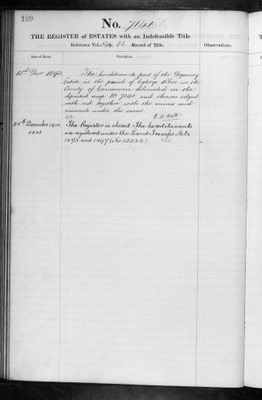 129
No. 7141
THE REGISTER of ESTATES with an Indefeasible Title
Reference Vol. Page 66 Record of Title.
Observations.
Date of Entry.
Description.
15th Decr 1893
The hereditaments part of the
Estate in the parish of in the
County of Carnarvon delineated on the
deposited map No 7141 and thereon edged
with red together with the mines and
minerals under the same.
24th December 1900
The Register is closed. The hereditaments
are registered under the Land Transfer Acts
1875 and 1897 (No